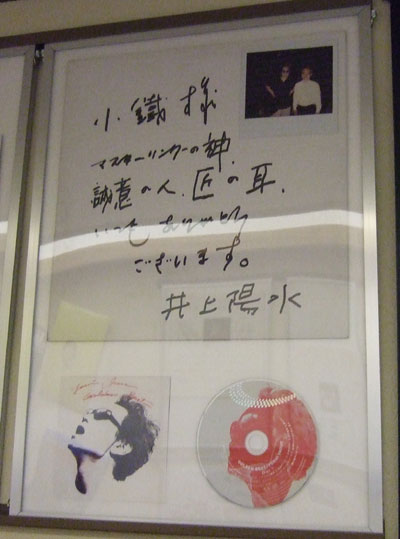 小鐵様
マスターリングの神、
誠意の人、匠の耳、
いつもありがとう
ございます。
井上陽水